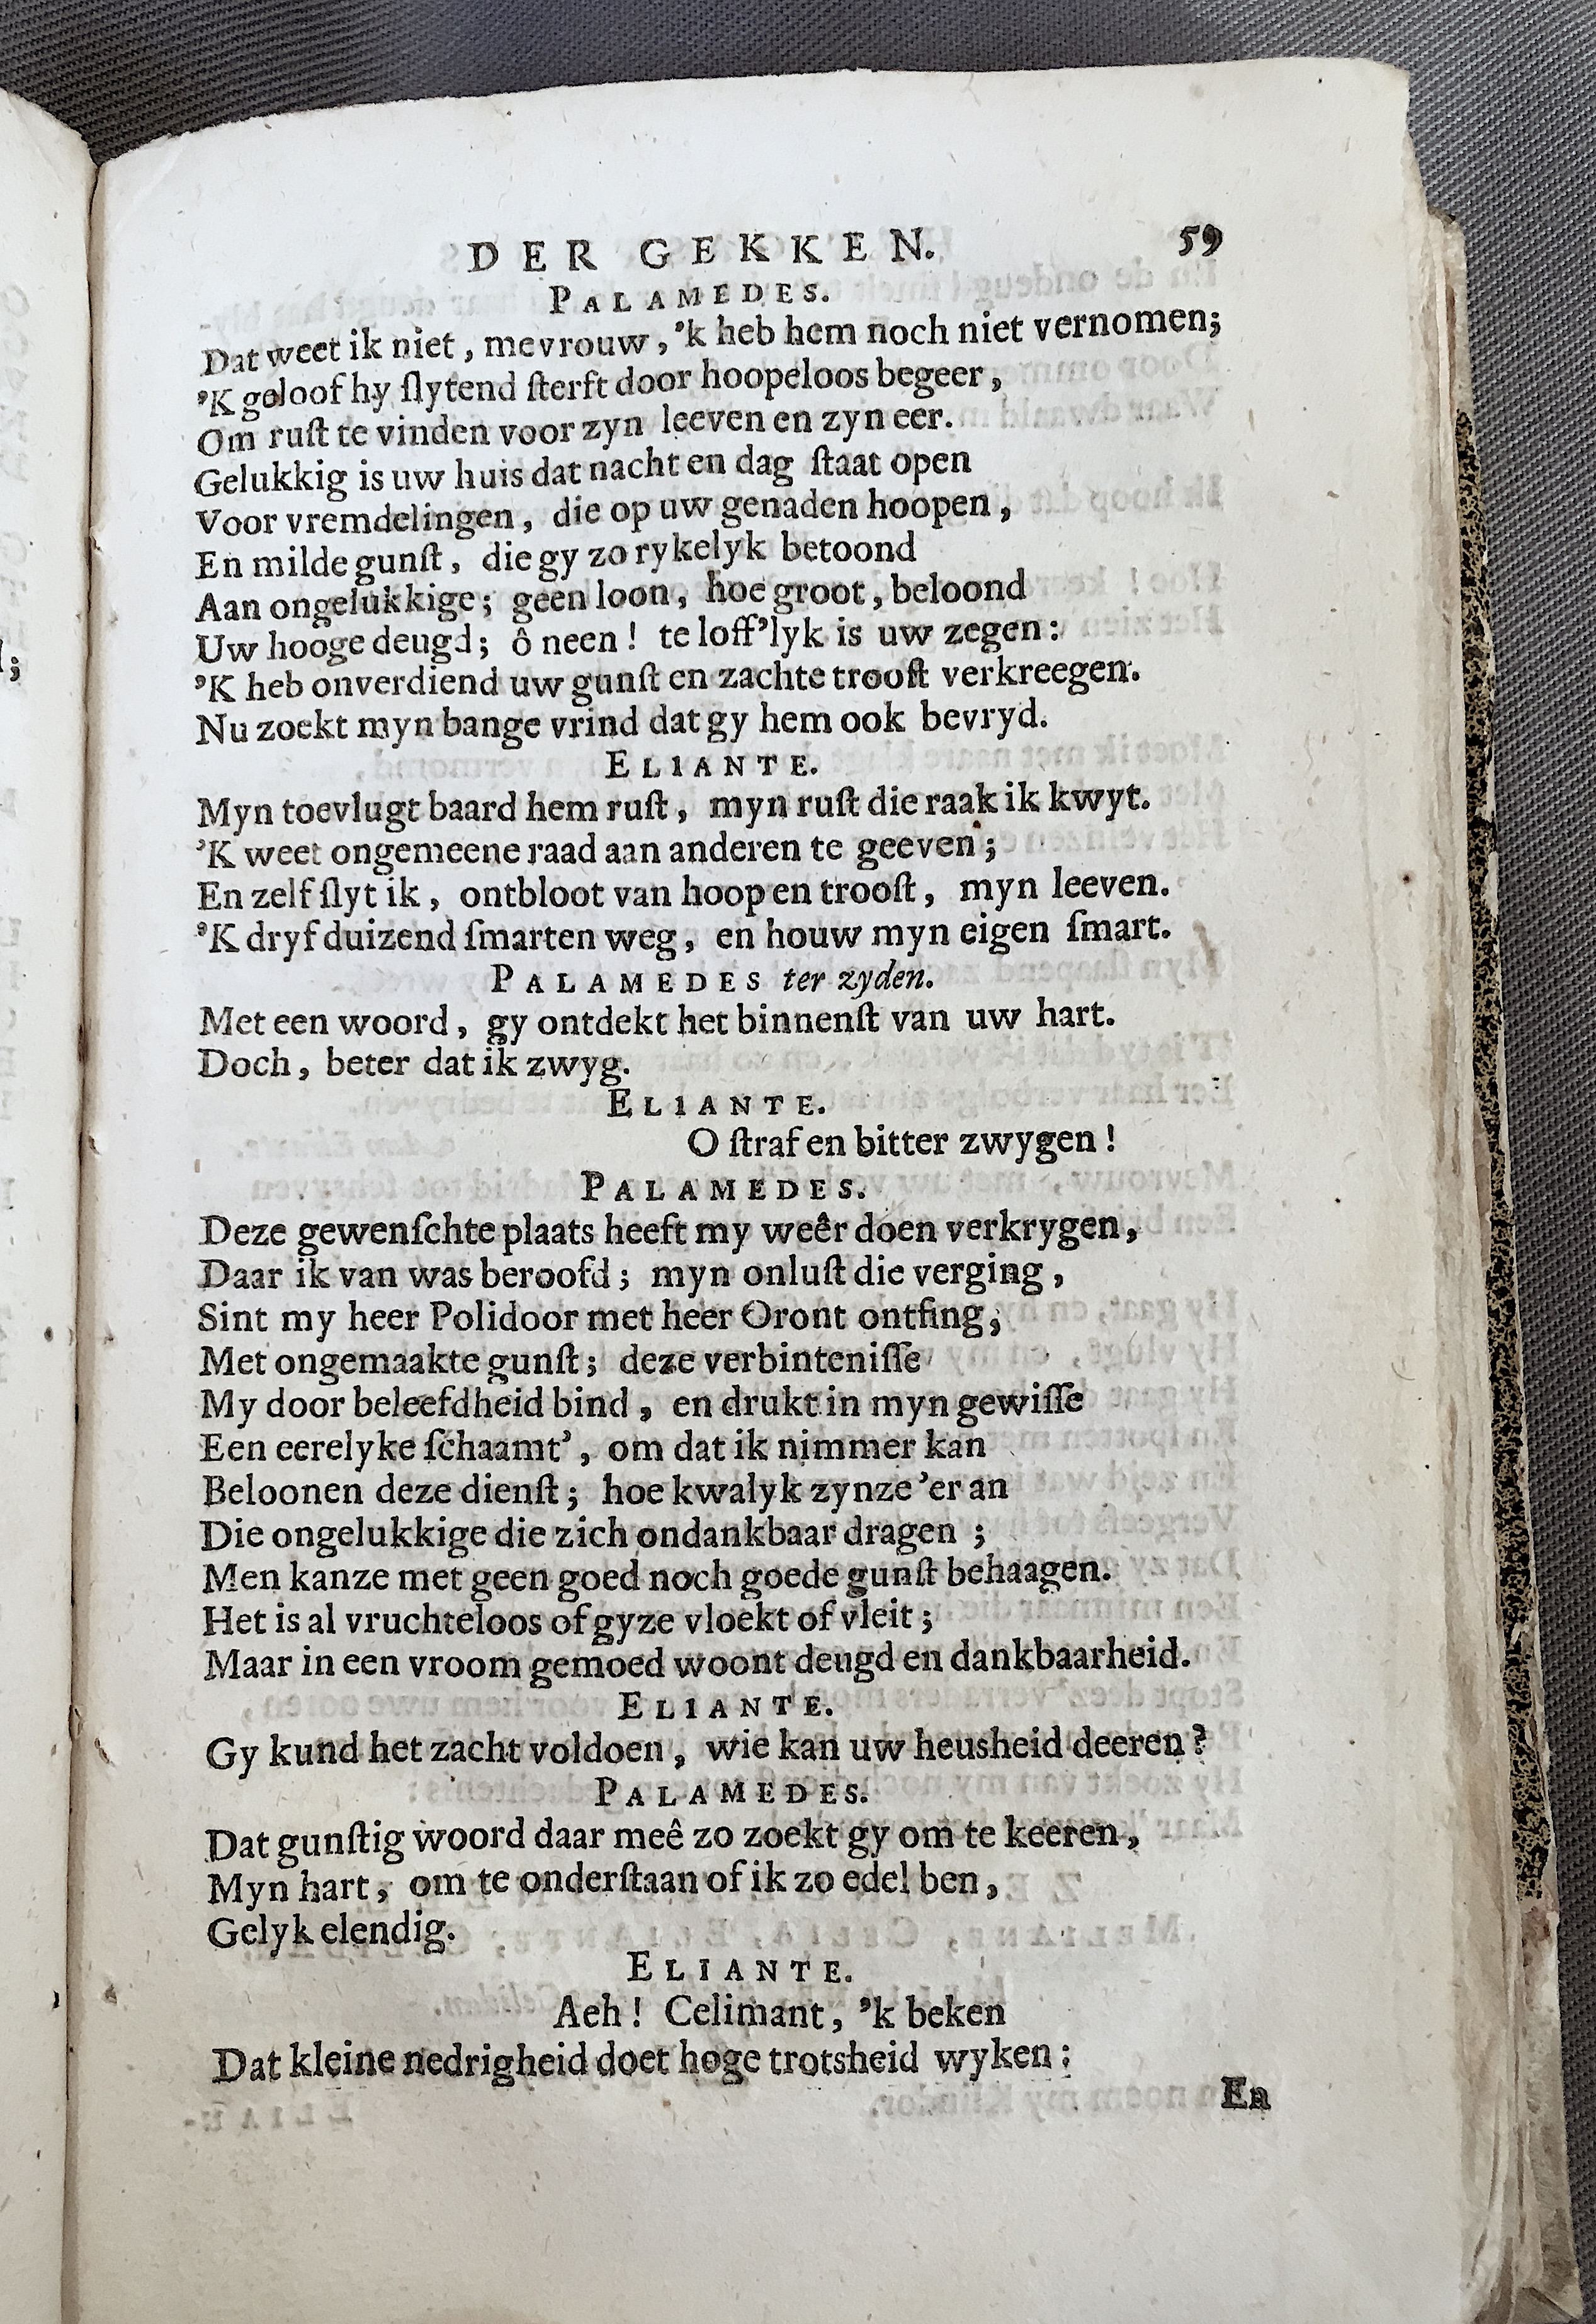 DER GEKKEN. 59
PALAMEDES.
Dat weet ik niet, mevrouw, 'k heb hem noch niet vernomen;
'K geloof hy ſlytend ſterft door hoopeloos begeer,
Om ruſt te vinden voor zyn leeven en zyn eer.
Gelukkig is uw huis dat nacht en dag ſtaat open
Voor vremdelingen, die op uw genaden hoopen,
En milde gunſt, die gy zo rykelyk betoond
Aan ongelukkige; geen loon, hoe groot, beloond
Uw hooge deugd; ô neen! te loff'lyk is uw zegen:
'K heb onverdiend uw gunſt en zachte trooſt verkreegen.
Nu zoekt myn bange vrind dat gy hem ook bevryd.
ELIANTE.
Myn toevlugt baard hem ruſt, myn ruſt die raak ik kwyt.
'K weet ongemeene raad aan anderen te geeven;
En zelf ſlyt ik, ontbloot van hoop en trooſt, myn leeven.
'K dryf duizend ſmarten weg, en houw myn eigen ſmart.
PALAMEDES ter zyden.
Met een woord, gy ontdekt het binnenſt van uw hart.
Doch, beter dat ik zwyg.
ELIANTE.
O ſtraf en bitter zwygen!
PALAMEDES.
Deze gewenſchte plaats heeft my weêr doen verkrygen,
Daar ik van was beroofd; myn onluſt die verging,
Sint my heer Polidoor met heer Oront ontfing,
Met ongemaakte gunſt; deze verbinteniſſe
My door beleefdheid bind, en drukt in myn gewiſſe
Een eerelyke ſchaamt', om dat ik nimmer kan
Beloonen deze dienſt; hoe kwalyk zynze 'er an
Die ongelukkige die zich ondankbaar dragen;
Men kanze met geen goed noch goede gunſt behaagen.
Het is al vruchteloos of gyze vloekt of vleit;
Maar in een vroom gemoed woont deugd en dankbaarheid.
ELIANTE.
Gy kund het zacht voldoen, wie kan uw heusheid deeren?
PALAMEDES.
Dat gunſtig woord daar meê zo zoekt gy om te keeren,
Myn hart, om te onderſtaan of ik zo edel ben,
Gelyk elendig.
ELIANTE.
Aeh! Celimant, 'k beken
Dat kleine nedrigheid doet hoge trotsheid wyken:
En